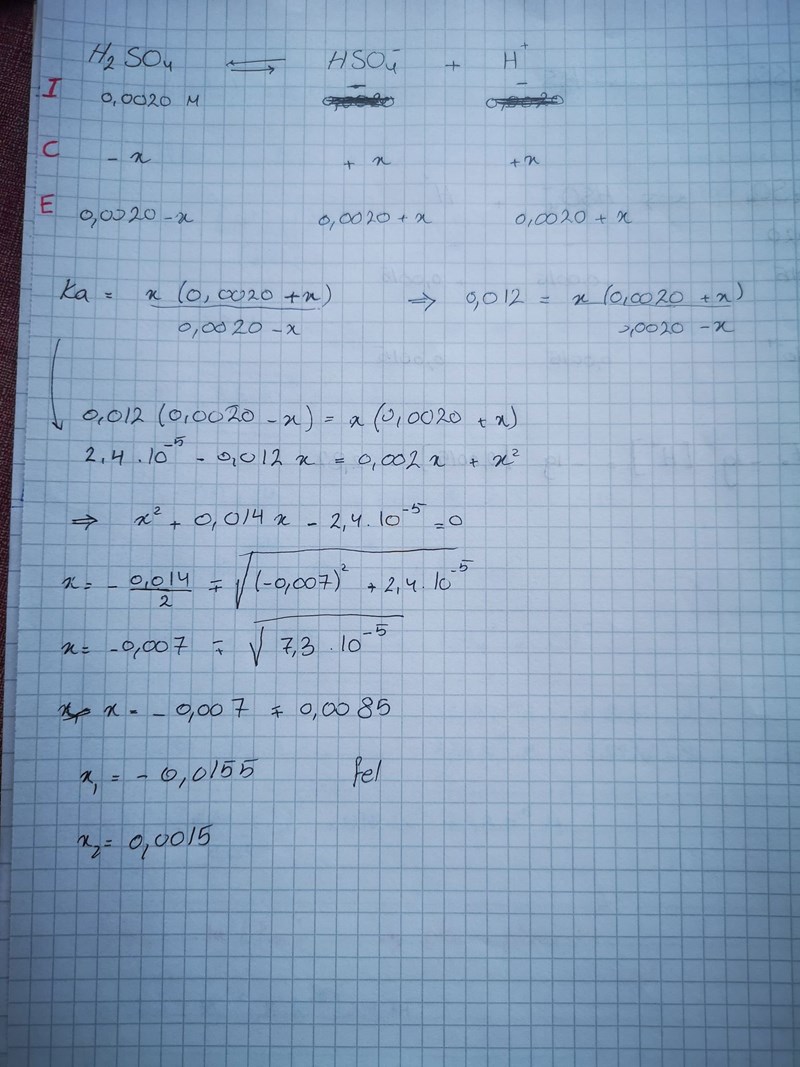 H₂SO₄ ⇌ HSO₄⁻ + H⁺
I 0,0020 M - -
C - x + x + x
E 0,0020 - x 0,0020 + x 0,0020 + x
Ka = x (0,0020 + x) / 0,0020 - x ⇒ 0,012 = x (0,0020 + x) / 0,0020 - x
0,012 (0,0020 - x) = x (0,0020 + x)
2,4 · 10⁻⁵ - 0,012 x = 0,002 x + x²
⇒ x² + 0,014 x - 2,4 · 10⁻⁵ = 0
x = - 0,014/2 ∓ √((-0,007)² + 2,4 · 10⁻⁵)
x = -0,007 ∓ √(7,3 · 10⁻⁵)
x = - 0,007 ∓ 0,0085
x₁ = - 0,0155 fel
x₂ = 0,0015